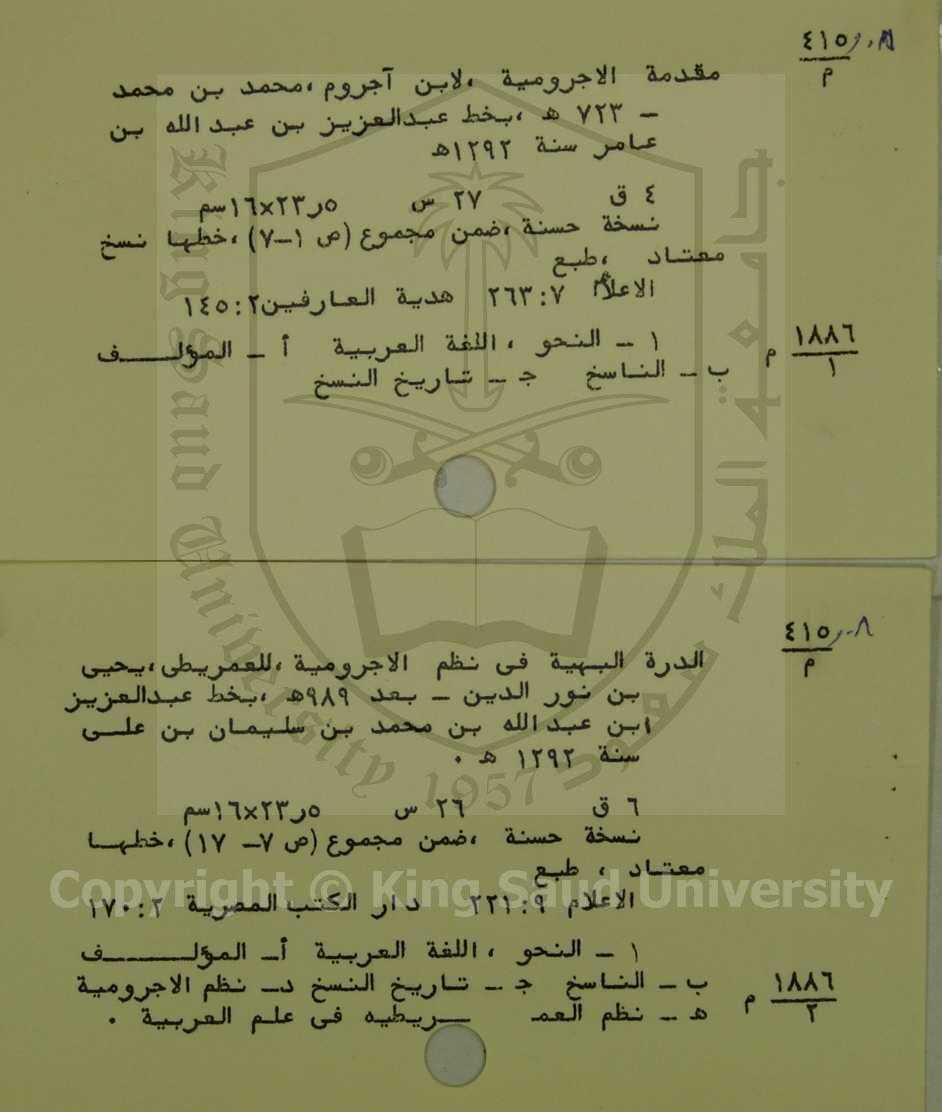 ٤١٥٫٠٨
م
مقدمة الاجرومية ،لابن آجروم ،محمد بن محمد
ـ ٧٢٣ هـ ،بخط عبدالعزيز بن عبد الله بن
عامر سنة ١٢٩٢هـ
٤ ق ٢٧ س ٥ر٢٣×١٦سم
نسخة حسنة ،ضمن مجموع (ص ١ـ٧) ،خطها نسخ
معتاد ،طبع
الاعلام ٧ : ٢٦٣ هدية العارفين٢ : ١٤٥
١ ـ النحو ، اللغة العربية أ ـ المؤلـــف
ب ـ الناسخ جـ ـ تاريخ النسخ
١٨٨٦
١
م
٤١٥٫٠٨
م
الدرة البهية فى نظم الاجرومية ،للعمريطى ،يحيى
بن نور الدين ـ بعد ٩٨٩هـ ،بخط عبدالعزيز
ابن عبد الله بن محمد بن سليمان بن علــى
سنة ١٢٩٢ هـ ٠
٦ ق ٢٦ س ٥ر٢٣×١٦سم
نسخة حسنة ،ضمن مجموع (ص ٧ـ ١٧) ،خطهـا
معتاد ، طبع
الاعلام ٩ : ٢٢١ دار الكتب المصرية ٢ : ١٧٠
١ ـ النحو ، اللغة العربية أـ المؤلـــف
ب ـ الناسخ جـ ـ تاريخ النسخ دـ نظم الاجرومية
هـ ـ نظم العمـ ـريطيه فى علم العربية ٠
١٨٨٦
٢
م
جامعة الملك سعود
King Saud University 1957
Copyright © King Saud University